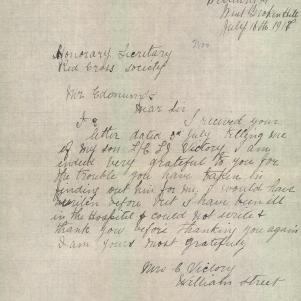 William St
West Broken Hill
July 16th 1918
Honorary Secretary
Red Cross Society
Mr Edmunds
Dear Sir
I received your
letter dated 2nd July telling me
of my son Victory I am
indeed very grateful to you for
the trouble you have taken in
finding out him for me I would have
written before but I have been ill
in the Hospital & could not write &
thank you before thanking you again
I am yours most gratefully
Mrs C Victory
William Street